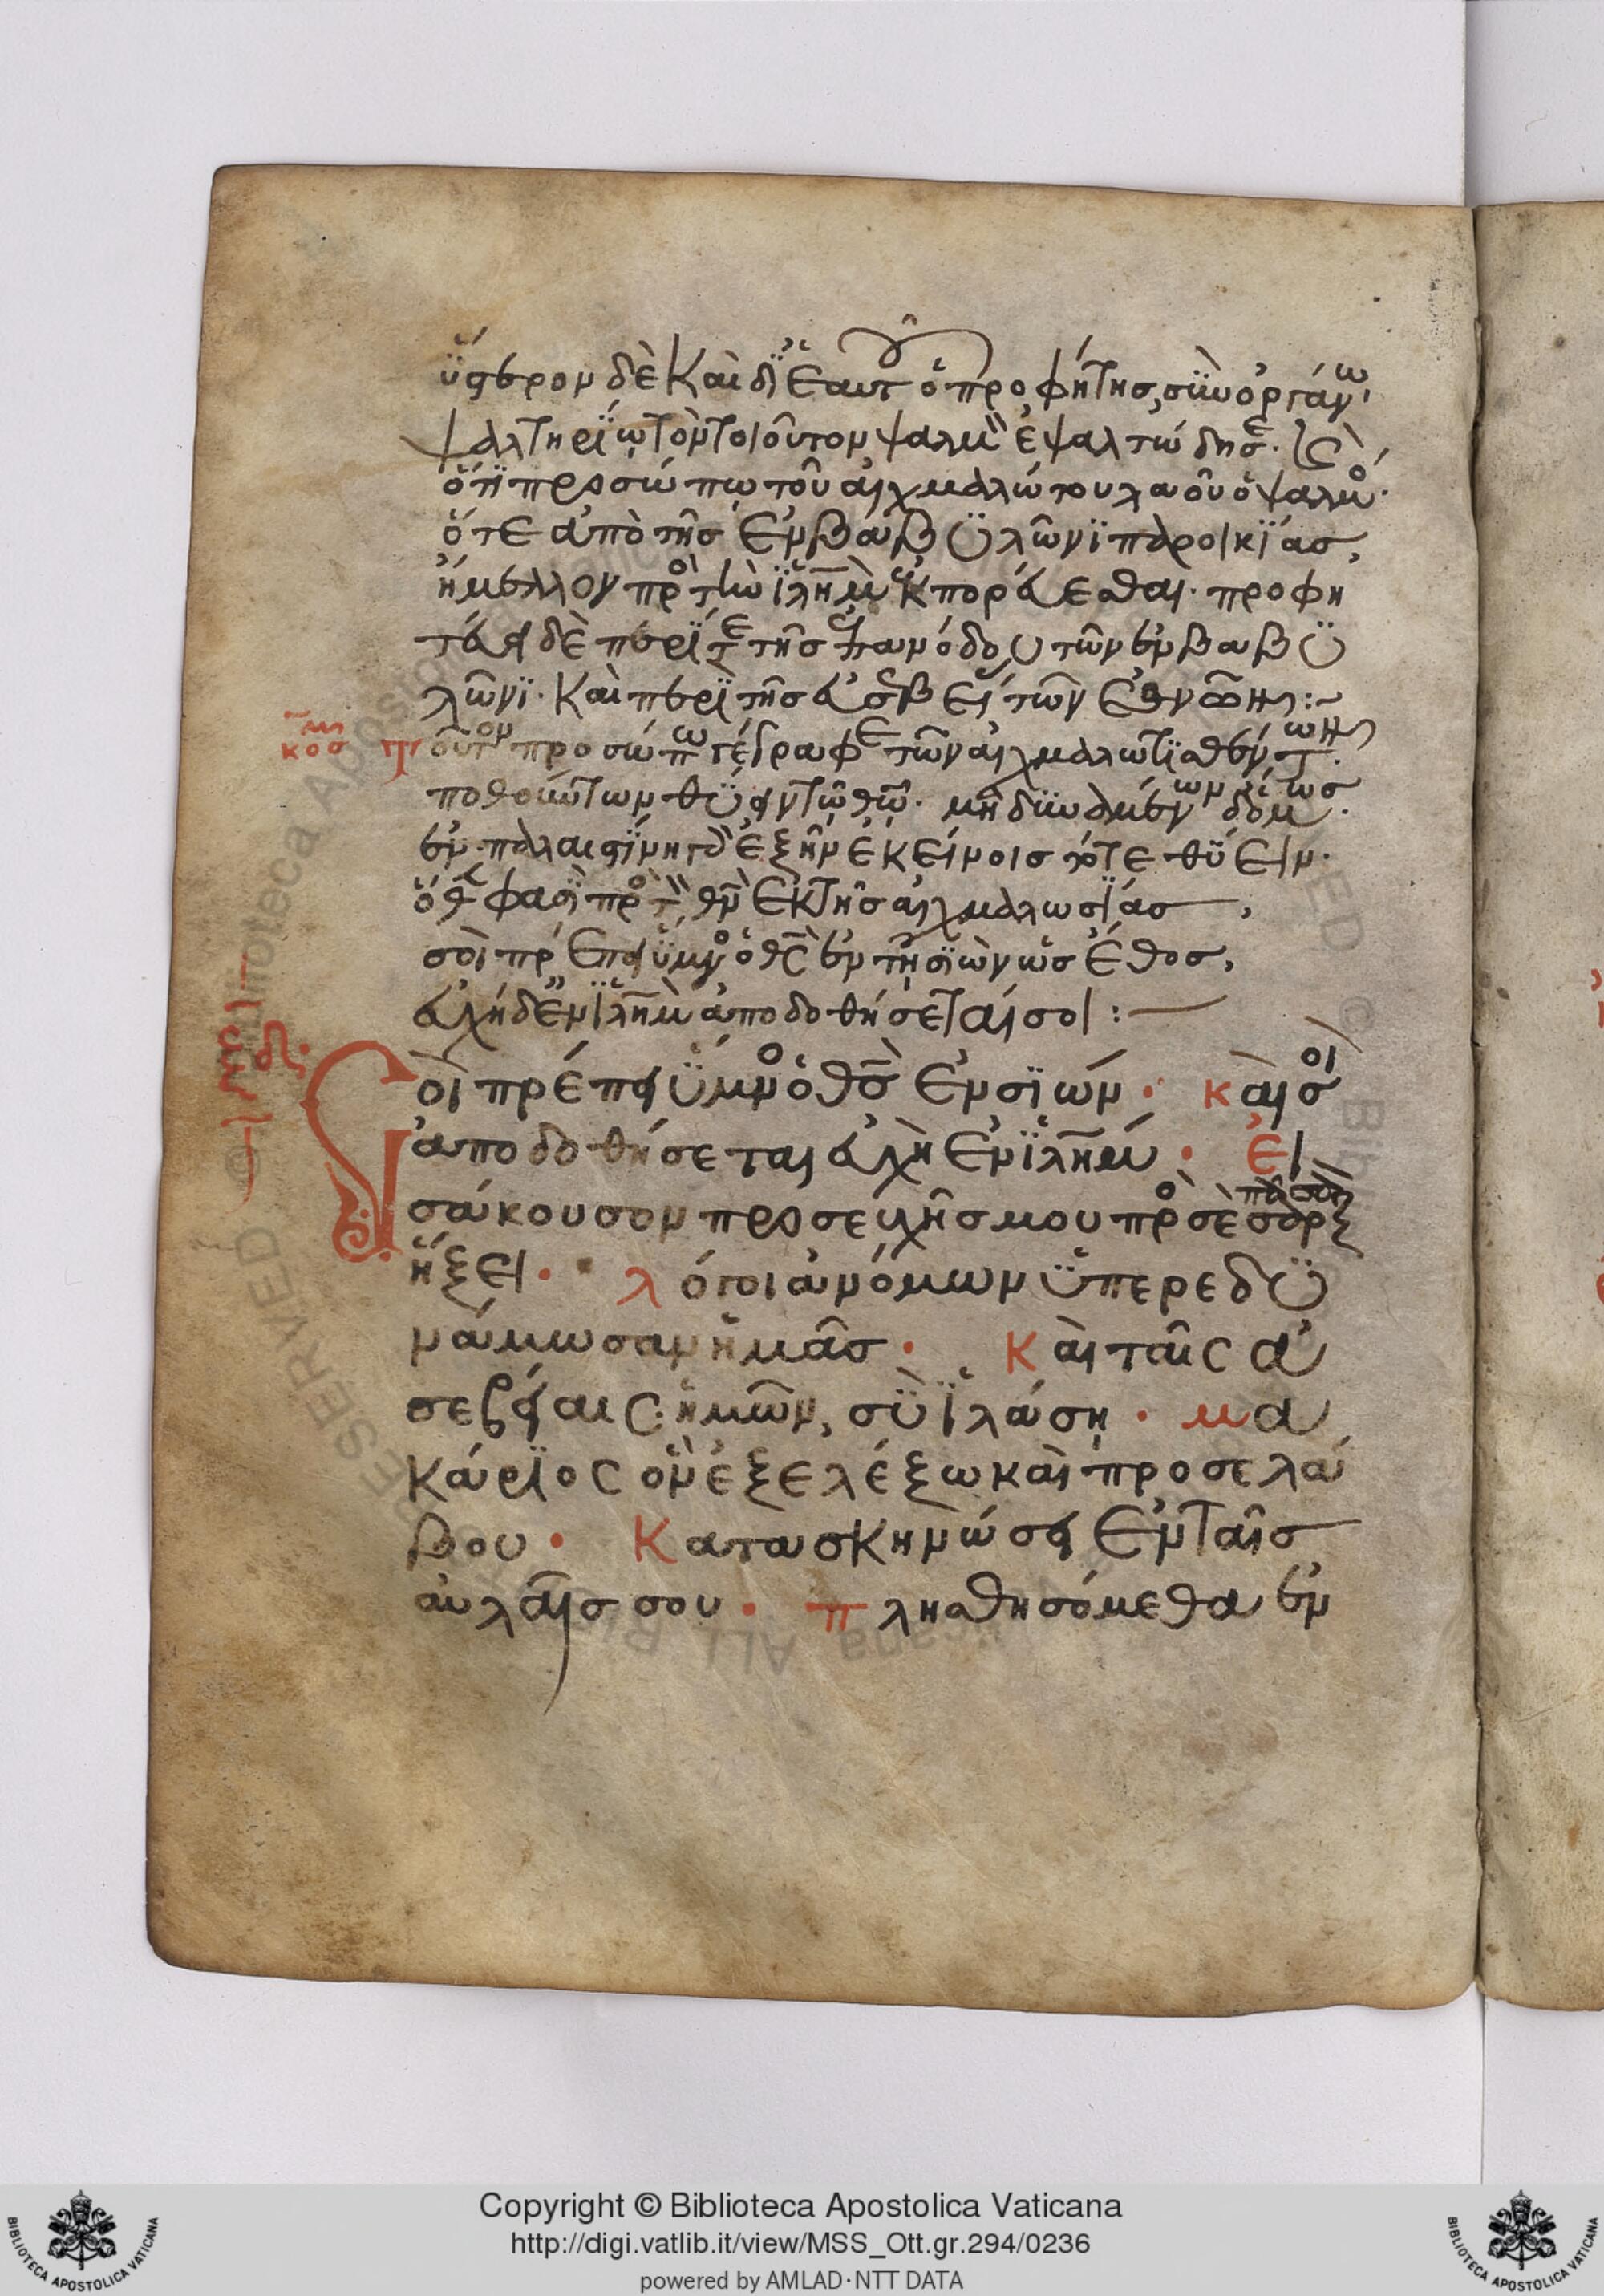 ὕστερον δὲ καὶ δι ἑαυτ ὁ προφήτης, σὺν ὀργάν
ψαλτηρίω τὸν τοιοῦτον ψαλμ ἔψαλτώ δης.
ὅτι προσώπω τοῦ αἰχμαλώτου λαοῦ ὁ ψαλμο.
ὅτε ἀπὸ τῆς ἐν βαβυλῶνι παροικίας,
ἤμελλον προ τὴν ἰλημ ἐκπορεύεσθαι. προφη
τεύει δὲ περί τε τῆς ἐπανόδου τῶν ἐν βαβυ
λῶνι. καὶ περὶ τῆς εὐσεβεί τῶν ἐθνῶν:~
κος τουτον προσώπω γέγραφε τῶν αἰχμαλωτισθέντων
ποθούντων θύειν τῶ θῶ. μὴ δυναμένων
ἐν παλαιστίνη γ ἐξῆν ἐκείνοις τότε θύειν.
ὅθ φασὶ προ τ θν ἐκ τῆς αἰχμαλωσίας,
σοὶ πρέπει ὕμνο ὁ θς ἐν τῇ σιὼν ὡς ἔθος,
εὐχὴ δε ἐν ἰλημ ἀποδοθήσεταί σοι:—
Σοὶ πρέπει ὕμνο ὁ θσ ἐν σιών· καὶ σοὶ
ἀποδοθήσεται εὐχὴ ἐν ἰλημ· Εἰ
σάκουσον προσευχῆσ μου προ σὲ πᾶσα σαρξ
ἥξει· λόγοι ἀνόμων ὑπερεδυ
νάμωσαν ἡμᾶσ· Καὶ ταῖς ἀ
σεβείαις ἡμῶν, σὺ ἱλάση· μα
κάριος ὃν ἐξελέξω καὶ προσελά
βου· Κατασκηνώσει ἐν ταῖσ
αὐλαῖσ σου· πλησθησόμεθα ἐν
Copyright © Biblioteca Apostolica Vaticana
http://digi.vatlib.it/view/MSS_Ott.gr.294/0236
powered by AMLAD·NTT DATA
BIBLIOTECA APOSTOLICA VATICANA
BIBLIOTECA APOSTOLICA VATICANA